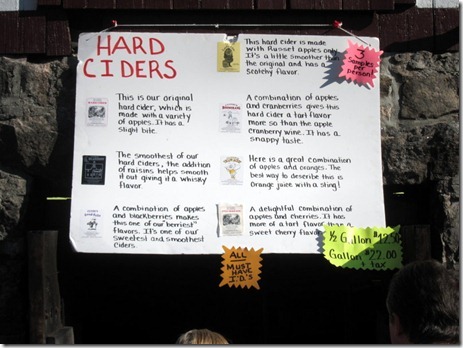 HARD
CIDERS
This hard cider is made
with Russet apples only.
It's a little smoother than
the original and has a
Scotchy flavor.
3
Samples
per
person!
This is our original
hard cider, which is
made with a variety
of apples. It has a
slight bite.
A combination of apples
and cranberries gives this
hard cider a tart flavor
more so than the apple
cranberry wine. It has a
snappy taste.
The smoothest of our
hard ciders, the addition
of raisins helps smooth
it out giving it a whisky
flavor.
Here is a great combination
of apples and oranges. The
best way to describe this is
Orange juice with a sting!
A combination of apples
and blackberries makes
this one of our "berriest"
flavors. It's one of our
sweetest and smoothest
ciders.
A delightful combination of
apples and cherries. It has
more of a tart flavor than a
sweet cherry flavor.
1/2 Gallon
Gallon $22.00
+ tax
ALL
MUST
HAVE
I.D.'S